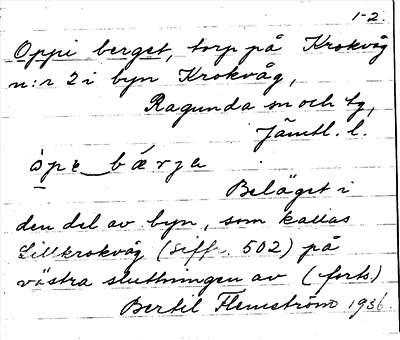 1-2.
Oppi berget, torp på Krokvåg
n:r 2 i byn Krokvåg,
Ragunda sn och tg,
Jämtl. l.
òpɛ bárja
Beläget i
den del av byn, som kallas
Lillkrokvåg (siffr. 502) på
västra sluttningen av (forts.)
Bertil Flemström 1936.